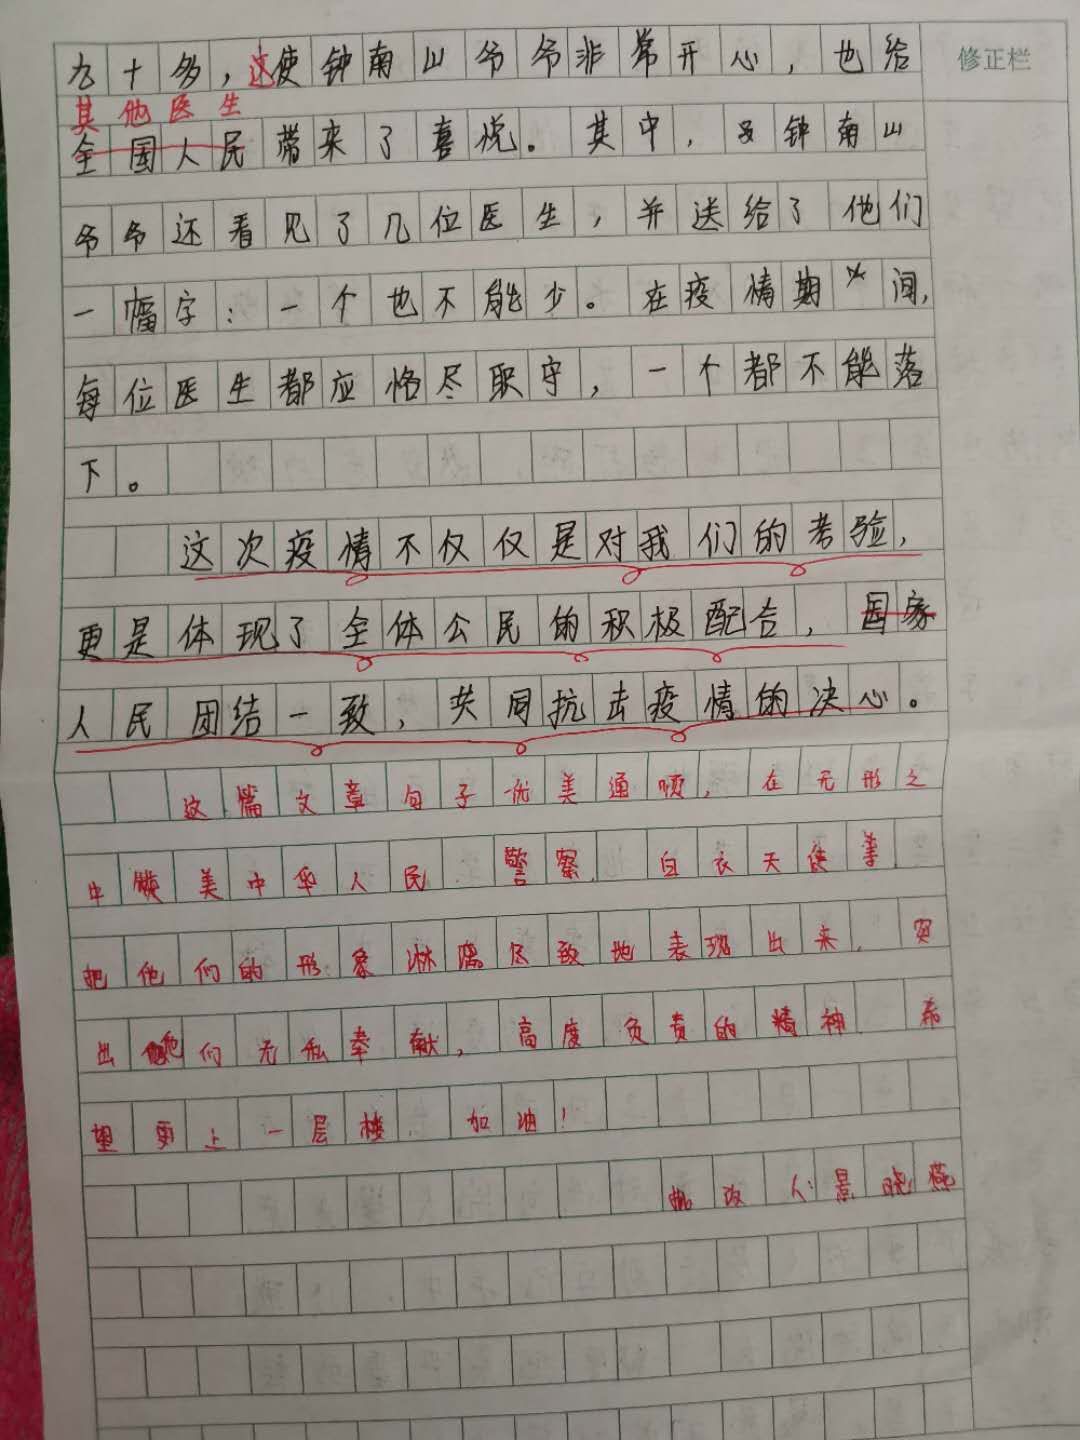 九十多，这使钟南山爷爷非常开心，也给
修正栏
其他医生
全国人民带来了喜悦。其中，钟南山
爷爷还看见了几位医生，并送给了他们
一幅字：一个也不能少。在疫情期间，
每位医生都应恪尽职守，一个都不能落
下。
这次疫情不仅仅是对我们的考验，
更是体现了全体公民的积极配合，国家
人民团结一致，共同抗击疫情的决心。
这篇文章句子优美通顺，在无形之
中赞美中华人民、警察、白衣天使等
把他们的形象淋漓尽致地表现出来，突
出他们无私奉献，高度负责的精神。希
望更上一层楼，加油！
批改人：景晓燕